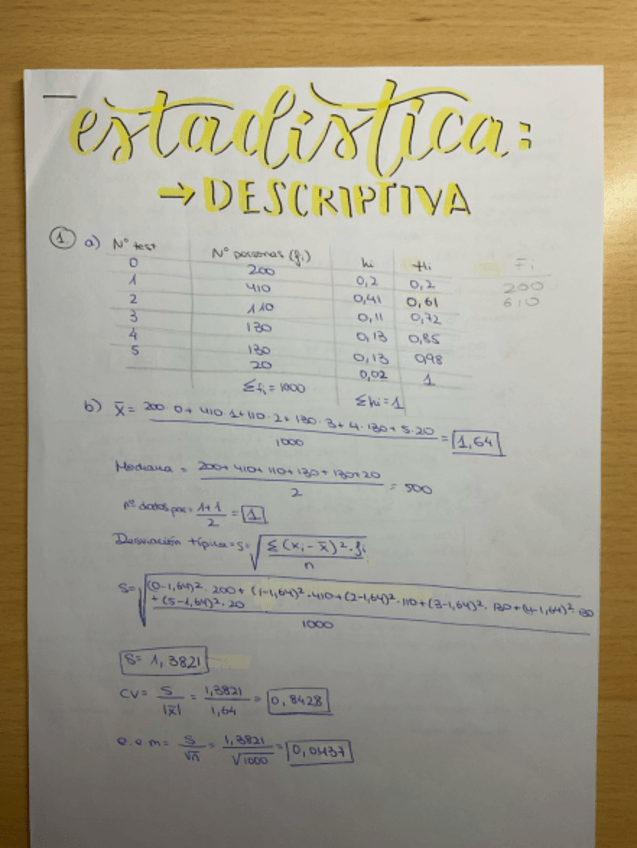 estadística:
→ DESCRIPTIVA
① a) Nº test Nº personas (fi) hi Hi Fi
0 200 0,2 0,2 200
1 410 0,41 0,61 610
2 110 0,11 0,72
3 130 0,13 0,85
4 130 0,13 0,98
5 20 0,02 1
Σfi = 1000 Σhi = 1
b) x̄ = 200·0 + 410·1 + 110·2 + 130·3 + 4·130 + 5·20 / 1000 = 1,64
Mediana = 200+410+110+130+130+20 / 2 = 500
nº datos par = 1+1 / 2 = 1
Desviación típica = s = √ Σ(xi - x̄)²·fi / n
S = √ (0-1,64)²·200 + (1-1,64)²·410 + (2-1,64)²·110 + (3-1,64)²·130 + (4-1,64)²·130
+ (5-1,64)²·20 / 1000
S = 1,3821
CV = S / |x̄| = 1,3821 / 1,64 = 0,8428
e.e.m = S / √n = 1,3821 / √1000 = 0,0437